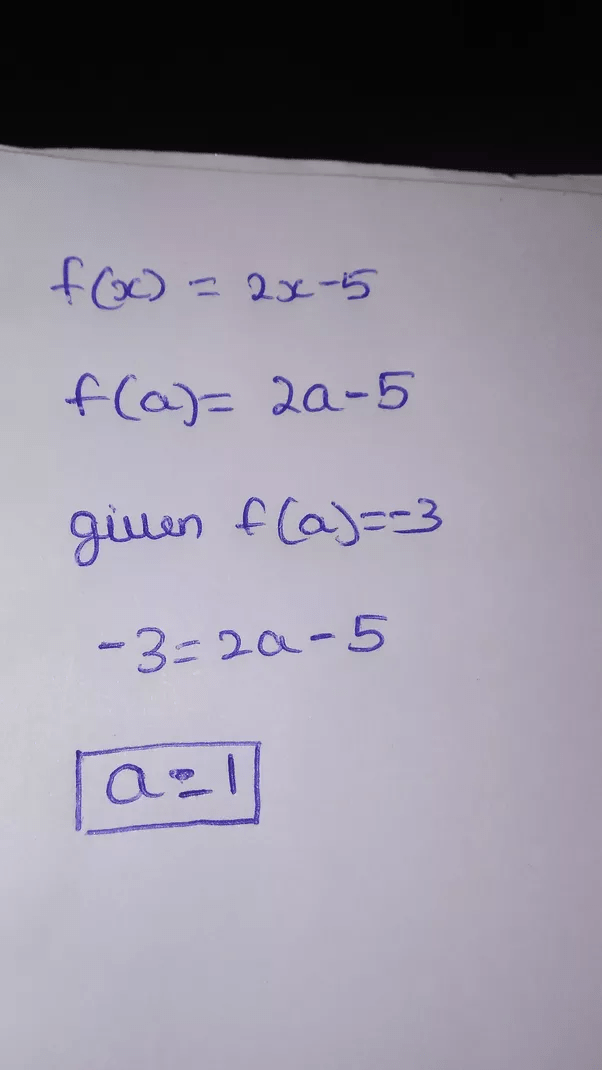 f(x) = 2x-5
f(a)= 2a-5
given f(a)=-3
-3=2a-5
a=1